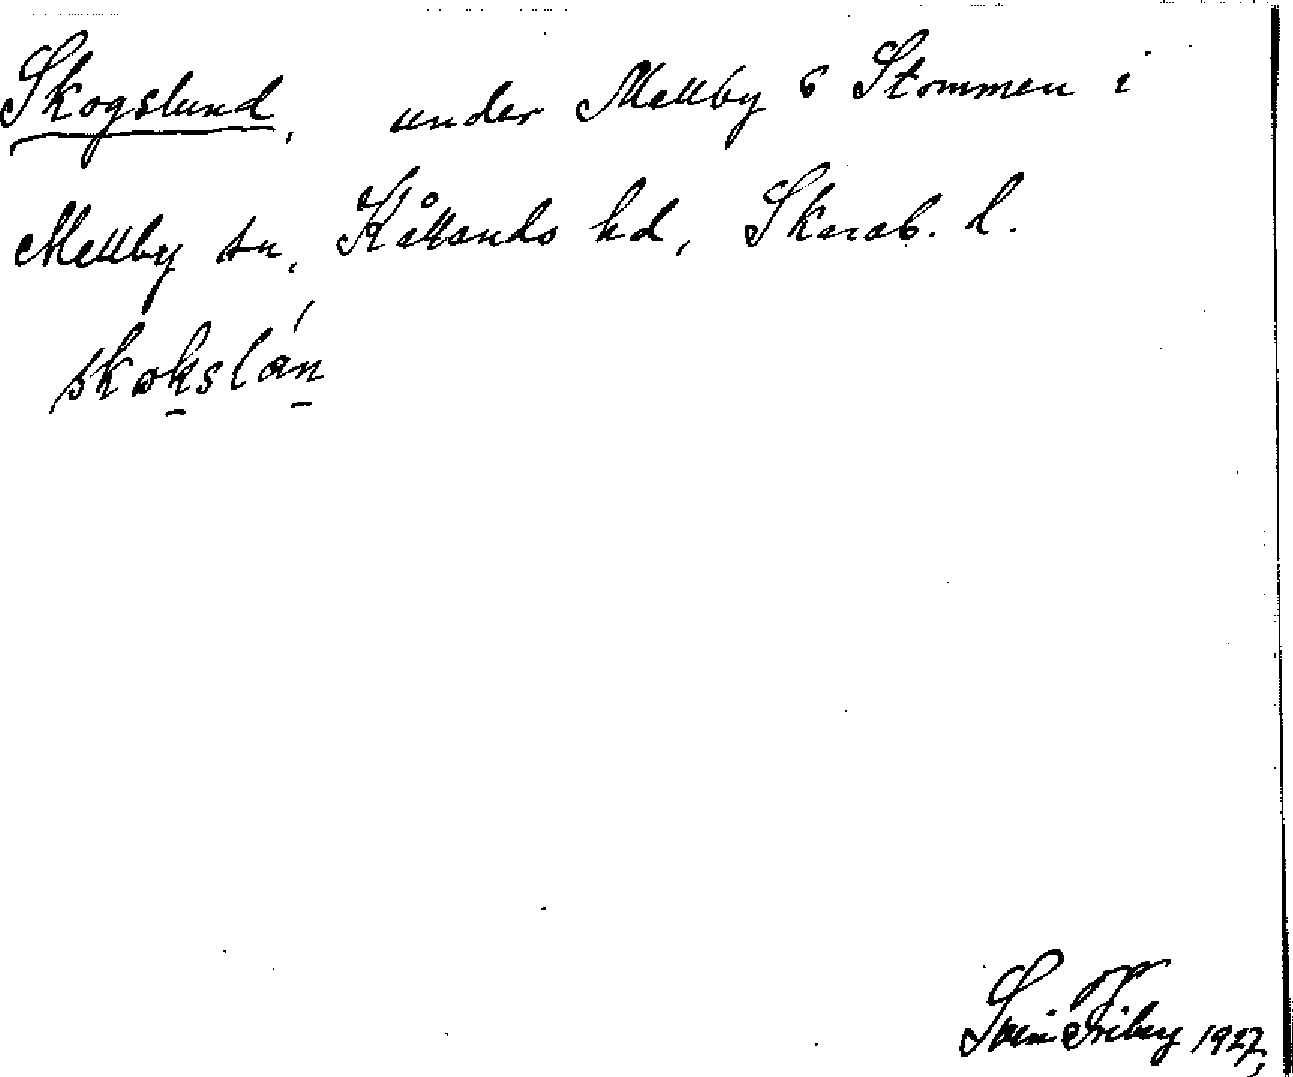 Skogslund, under Mellby 6 Stommen i
Mellby sn, Kållands hd, Skarab. l.
skokslán
Sven Friby 1927,